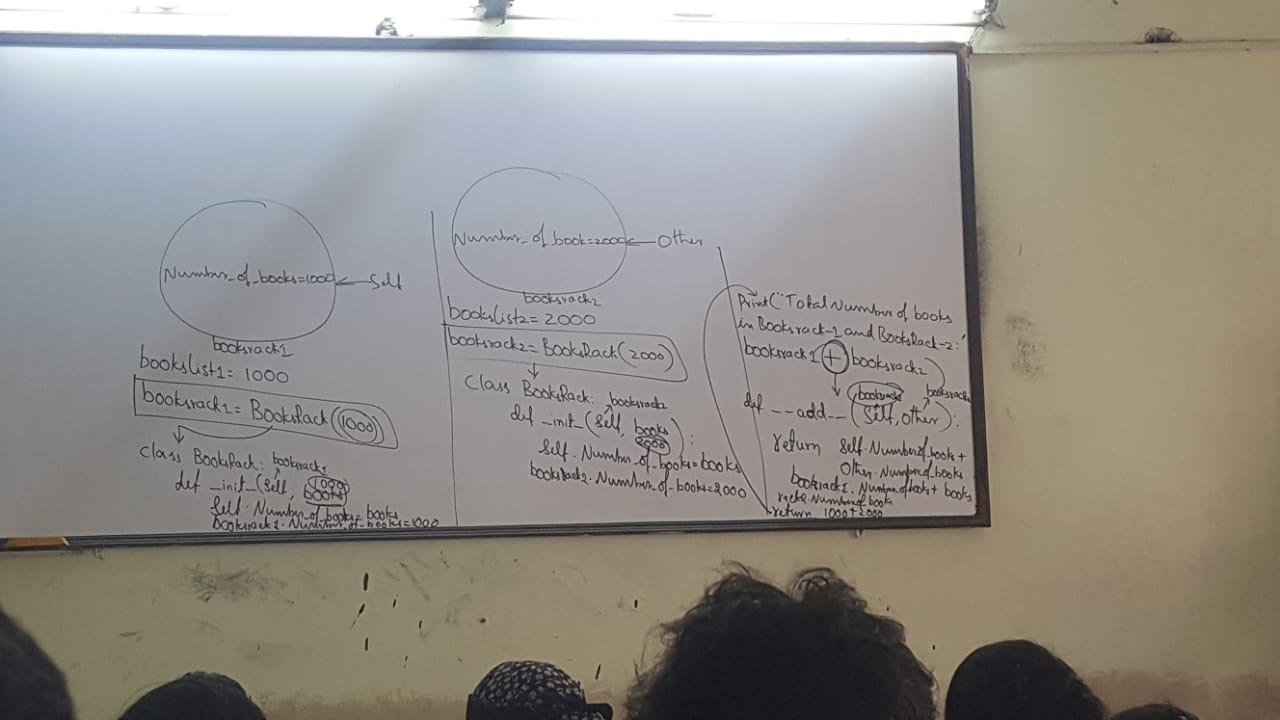 Number_of_books=1000 ← Self
booksrack1
bookslist1= 1000
booksrack1= BooksRack(1000)
class BooksRack: booksrack1
def _init_(Self, books
1000
Self. Number_of_books= books
booksrack1. Number_of_books=1000
Number_of_book=2000 ← Other
booksrack2
bookslist2= 2000
booksrack2= BooksRack(2000)
Class BooksRack: booksrack2
def _init_(Self, books):
2000
Self. Number_of_books=books
booksrack2. Number_of_books=2000
Print("Total Number of books
in Booksrack-1 and BooksRack-2:"
booksrack1 + booksrack2)
def __add__(Self, other):
return self.Number of_books +
Other. Number of_books
booksrack1. Number of books + books
rack2. Number of books
return 1000+2000